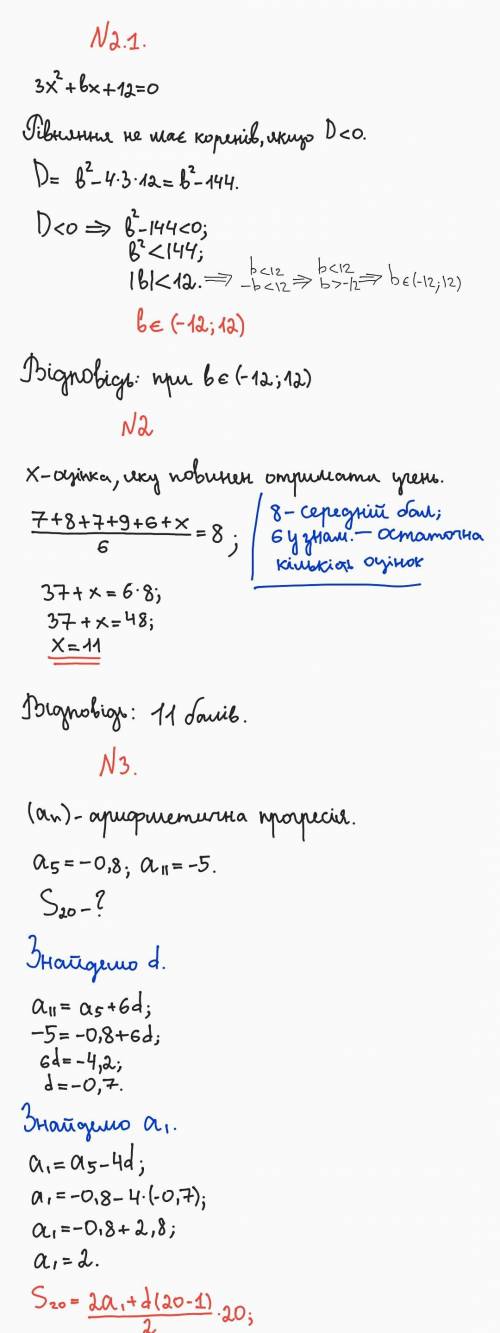 N2.1.
3x²+bx+12=0
Рівняння не має коренів, якщо D<0.
D= b²-4·3·12=b²-144.
D<0 ⇒ b²-144<0;
b²<144;
|b|<12. ⇒ b<12 -b<12 ⇒ b<12 b>-12 ⇒ b∈(-12;12)
b∈(-12;12)
Відповідь: при b∈(-12;12)
N2
x-оцінка, яку повинен отримати учень.
(7+8+7+9+6+x)/6=8;
8-середній бал;
6 у знам. - остаточна
кількість оцінок
37+x=6·8;
37+x=48;
x=11
Відповідь: 11 балів.
N3.
(aₙ)-арифметична прогресія.
a₅=-0,8; a₁₁=-5.
S₂₀-?
Знайдемо d.
a₁₁=a₅+6d;
-5=-0,8+6d;
6d=-4,2;
d=-0,7.
Знайдемо a₁.
a₁=a₅-4d;
a₁=-0,8-4·(-0,7);
a₁=-0,8+2,8;
a₁=2.
S₂₀=(2a₁+d(20-1))/2·20;